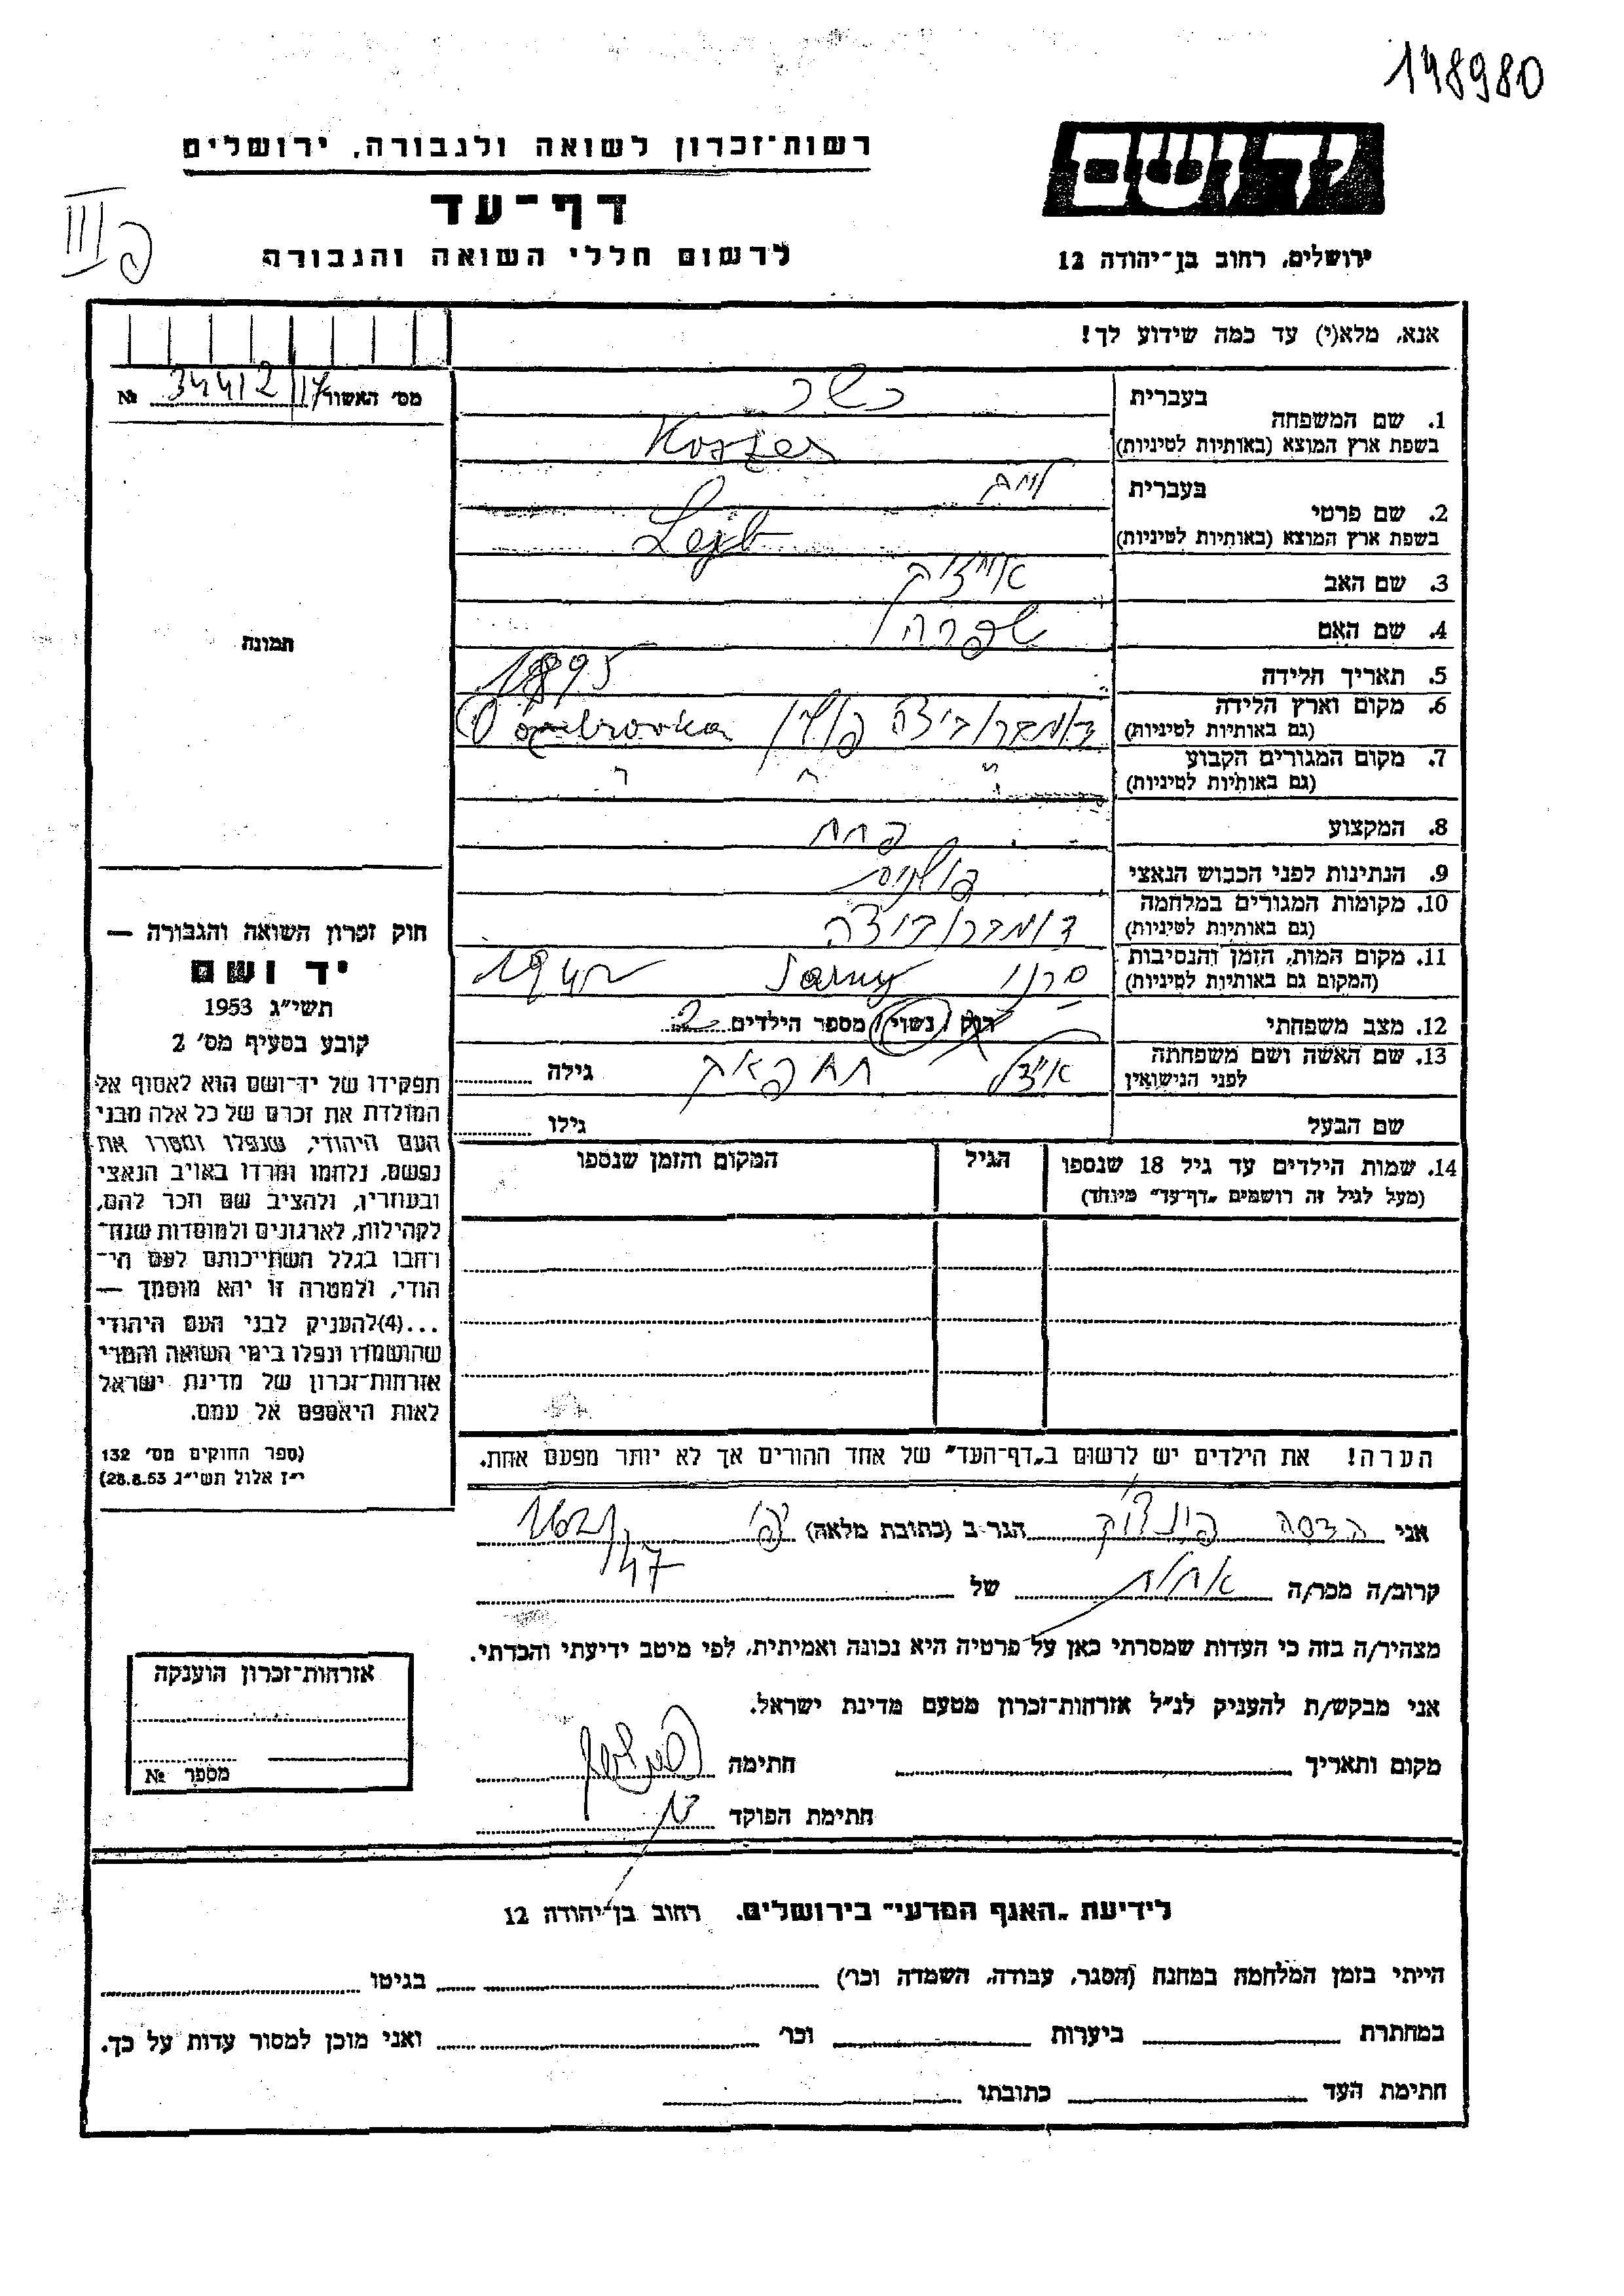 148980
רשות-זכרון לשואה ולגבורה, ירושלים
יד ושם
דף-עד
לרשום חללי השואה והגבורה
ירושלים, רחוב בן-יהודה 12
פ III
אנא, מלא(י) עד כמה שידוע לך!
מס׳ האשור 34412/17 №
תמונה
בעברית כשר
1. שם המשפחה
בשפת ארץ המוצא (באותיות לטיניות) Koszer
בעברית לייב
2. שם פרטי
בשפת ארץ המוצא (באותיות לטיניות) Lejb
3. שם האב אייזיק
4. שם האם שפרה
5. תאריך הלידה 1895
6. מקום וארץ הלידה דומברוביצה פולין Dąmbrovka
(גם באותיות לטיניות)
7. מקום המגורים הקבוע " " "
(גם באותיות לטיניות)
8. המקצוע פחח
9. הנתינות לפני הכבוש הנאצי פולנית
10. מקומות המגורים במלחמה דומברוביצה
(גם באותיות לטיניות)
11. מקום המות, הזמן והנסיבות סרני Sarny 1942
(המקום גם באותיות לטיניות)
12. מצב משפחתי רווק / נשוי / מספר הילדים 2
13. שם האשה ושם משפחתה גילה
לפני הנישואין
שם הבעל גילו
14. שמות הילדים עד גיל 18 שנספו הגיל המקום והזמן שנספו
(מעל לגיל זה רושמים „דף-עד״ מיוחד)
הערה! את הילדים יש לרשום ב„דף-העד״ של אחד ההורים אך לא יותר מפעם אחת.
חוק זכרון השואה והגבורה —
יד ושם
תשי״ג 1953
קובע בסעיף מס׳ 2
תפקידו של יד-ושם הוא לאסוף אל
המולדת את זכרם של כל אלה מבני
העם היהודי, שנפלו ומסרו את
נפשם, נלחמו ומרדו באויב הנאצי
ובעוזריו, ולהציב שם וזכר להם,
לקהילות, לארגונים ולמוסדות שנח־
רבו בגלל השתייכותם לעם הי־
הודי, ולמטרה זו יהא מוסמך —
...(4)להעניק לבני העם היהודי
שהושמדו ונפלו בימי השואה והמרי
אזרחות-זכרון של מדינת ישראל
לאות היאספם אל עמם.
(ספר החוקים מס׳ 132
י״ז אלול תשי״ג 28.8.53)
אני הדסה הגר ב (כתובת מלאה) יפו 1621/47
קרוב/ה מכר/ה אחות של
מצהיר/ה בזה כי העדות שמסרתי כאן על פרטיה היא נכונה ואמיתית, לפי מיטב ידיעתי והכרתי.
אני מבקש/ת להעניק לנ״ל אזרחות-זכרון מטעם מדינת ישראל.
מקום ותאריך חתימה
חתימת הפוקד
אזרחות-זכרון הוענקה
מספר №
לידיעת „האגף המדעי״ בירושלים, רחוב בן-יהודה 12
הייתי בזמן המלחמה במחנה (הסגר, עבודה, השמדה וכו׳) בגיטו
במחתרת ביערות וכו׳ ואני מוכן למסור עדות על כך.
חתימת העד כתובתו